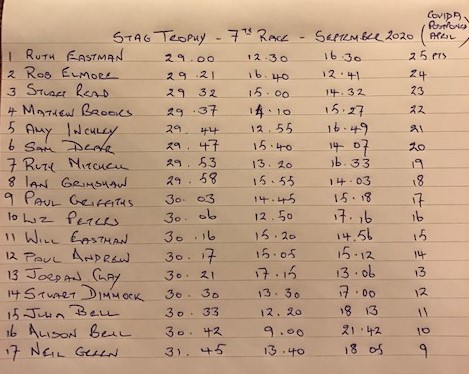 COVID19
STAG TROPHY - 7TH RACE - SEPTEMBER 2020 (POSTPONED APRIL)
1 RUTH EASTMAN 29.00 12.30 16.30 25 PTS
2 ROB ELMORE 29.21 16.40 12.41 24
3 STUART READ 29 32 15.00 14.32 23
4 MATHEW BROOKS 29.37 14.10 15.27 22
5 AMY INCHLEY 29.44 12.55 16.49 21
6 SAM DEAR 29.47 15.40 14 07 20
7 RUTH MITCHELL 29.53 13.20 16.33 19
8 IAN GRIMSHAW 29.58 15.55 14.03 18
9 PAUL GRIFFITHS 30.03 14.45 15.18 17
10 LIZ PETERS 30.06 12.50 17.16 16
11 WILL EASTMAN 30.16 15.20 14.56 15
12 PAUL ANDREW 30.17 15.05 15.12 14
13 JORDAN CLAY 30.21 17.15 13.06 13
14 STUART DIMMOCK 30.30 13.30 17.00 12
15 JULIA BELL 30.33 12.20 18 13 11
16 ALISON BELL 30.42 9.00 21.42 10
17 NEIL GREEN 31.45 13.40 18 05 9